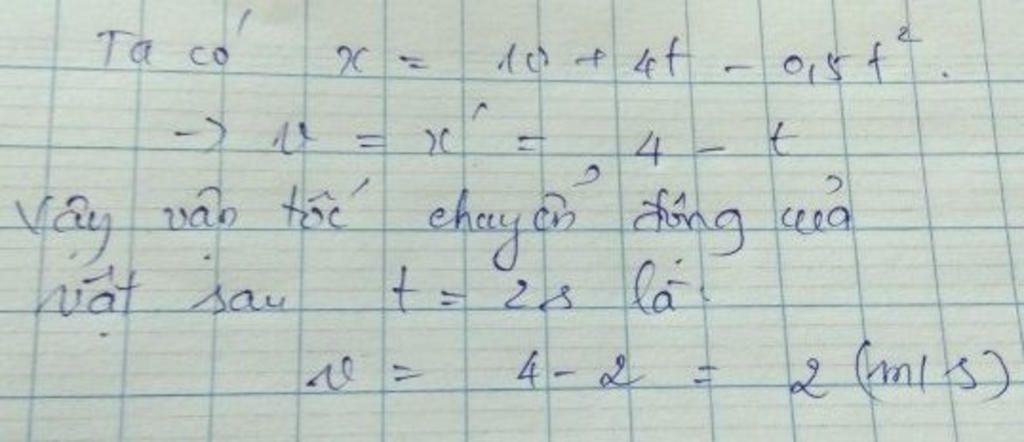 Ta có x = 10 + 4t - 0,5t².
→ v = x' = 4 - t
Vậy vận tốc chuyển động của
vật sau t = 2s là:
v = 4 - 2 = 2 (m/s)